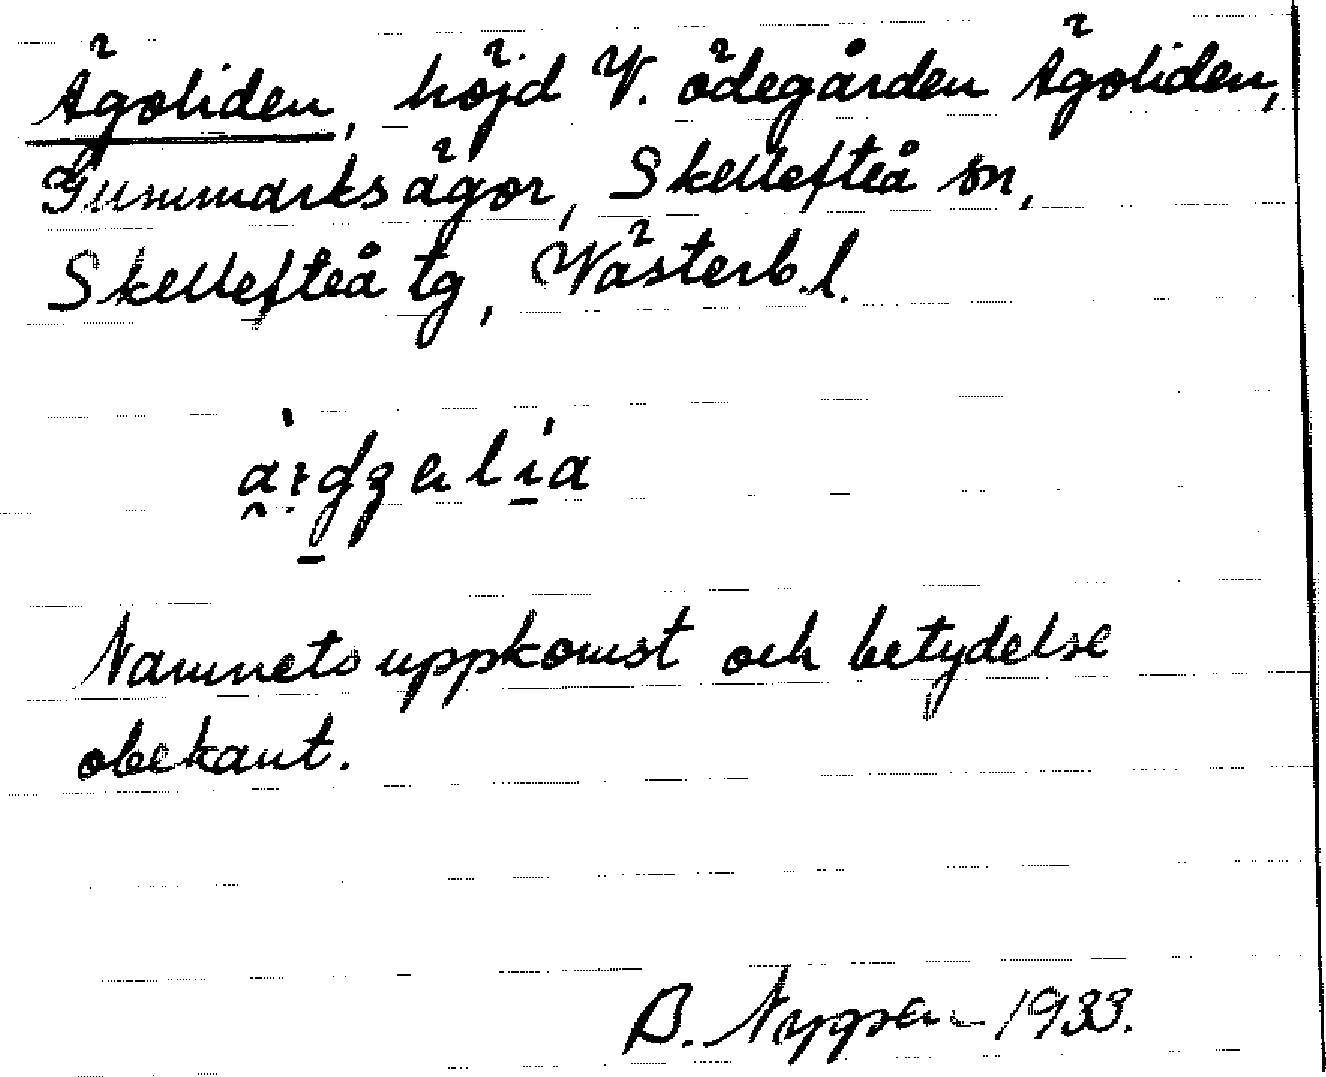 Ägoliden, höjd V. ödegården Ägoliden,
Gummarks ägor, Skellefteå sn,
Skellefteå tg, Västerb.l.
Namnets uppkomst och betydelse
obekant.
B. Nygren 1933.